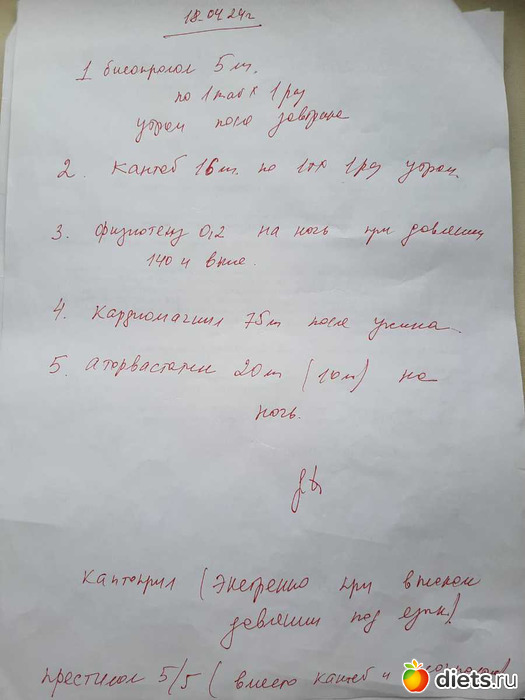 18.04.24г
1 бисопролол 5 m.
по 1 таб х 1 раз
утром после завтрака
2. Кантаб 16 m. по 1т х 1 раз утром.
3. Физиотенз 0,2 на ночь при давлении
140 и выше.
4. Кардиомагнил 75 m после ужина.
5. аторвастатин 20 m (10 m) на
ночь.
каптоприл (Экстренно при высоком
давлении под язык)
престилол 5/5 (вместо кантаб и бисопролол)
diets.ru